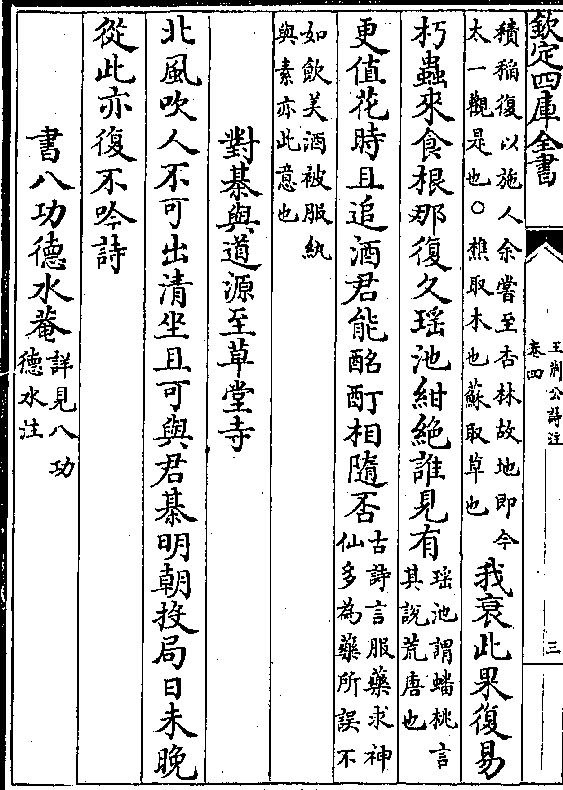 欽定四庫全書
王荆公詩注
卷四
三
積稲復以施人余嘗至杏林故地即今
太一觀是也○樵取木也蘇取草也
我衰此果復易
朽蟲來食根那復久瑶池紺絶誰見有
瑶池謂蟠桃言
其說荒唐也
更值花時且追酒君能酩酊相隨否
古詩言服藥求神
仙多為藥所誤不
如飲美酒被服紈
與素亦此意也
對棊與道源至草堂寺
北風吹人不可出清坐且可與君棊明朝投局日未晚
從此亦復不吟詩
書八功德水菴
詳見八功
德水注